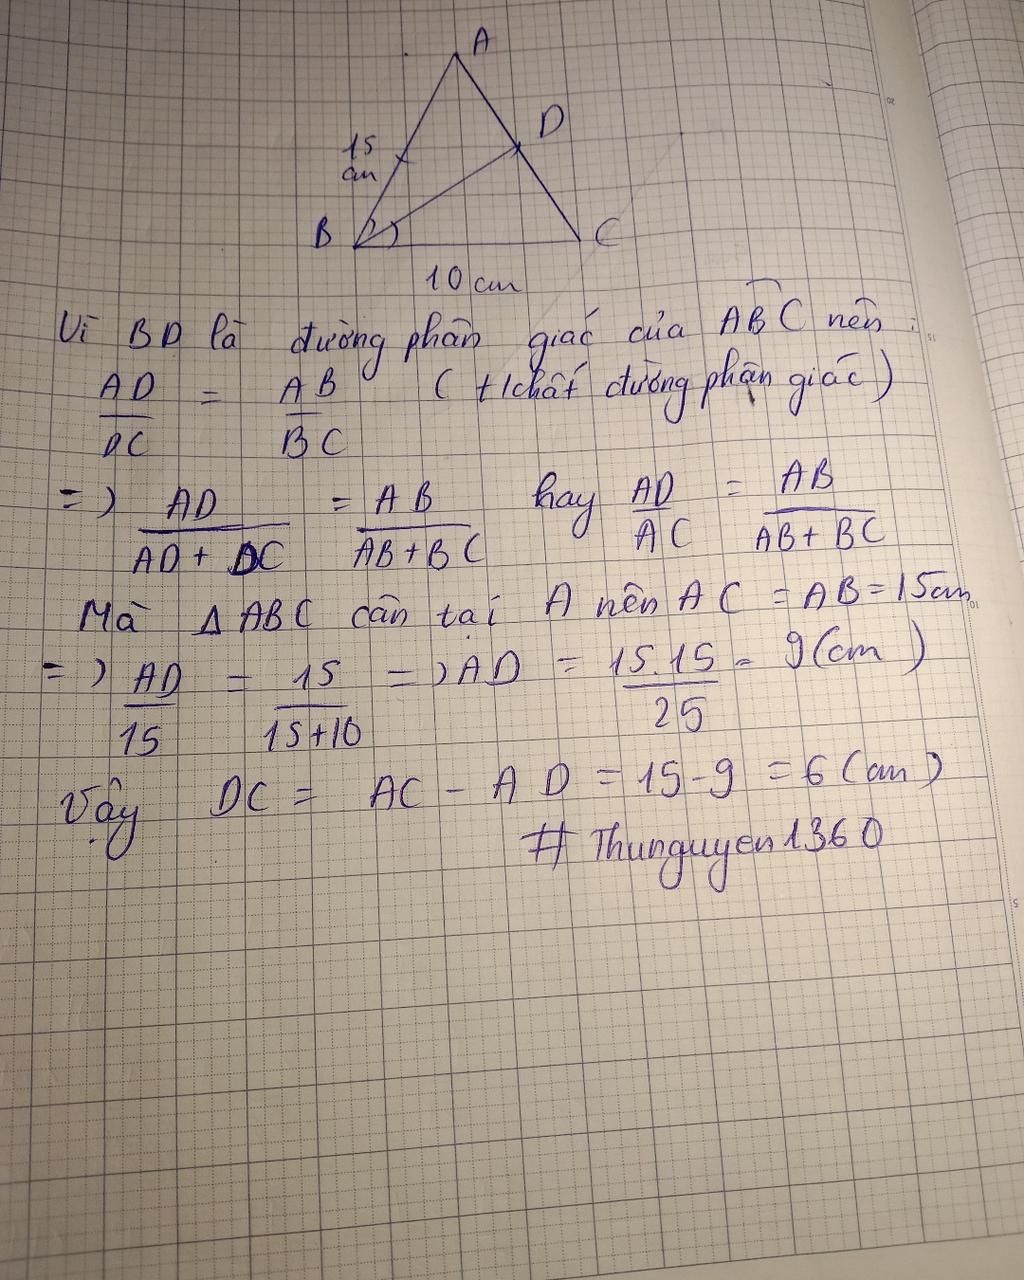 A
D
15
cm
B
C
10 cm
Vì BD là đường phân giác của ABC nên :
AD/DC = AB/BC ( t/chất đường phân giác )
=> AD/AD + DC = AB/AB + BC hay AD/AC = AB/AB + BC
Mà Δ ABC cân tại A nên AC = AB = 15cm
=> AD/15 = 15/15+10 => AD = 15.15/25 = 9 (cm)
Vậy DC = AC - AD = 15 - 9 = 6 (cm)
# Thunguyen1360